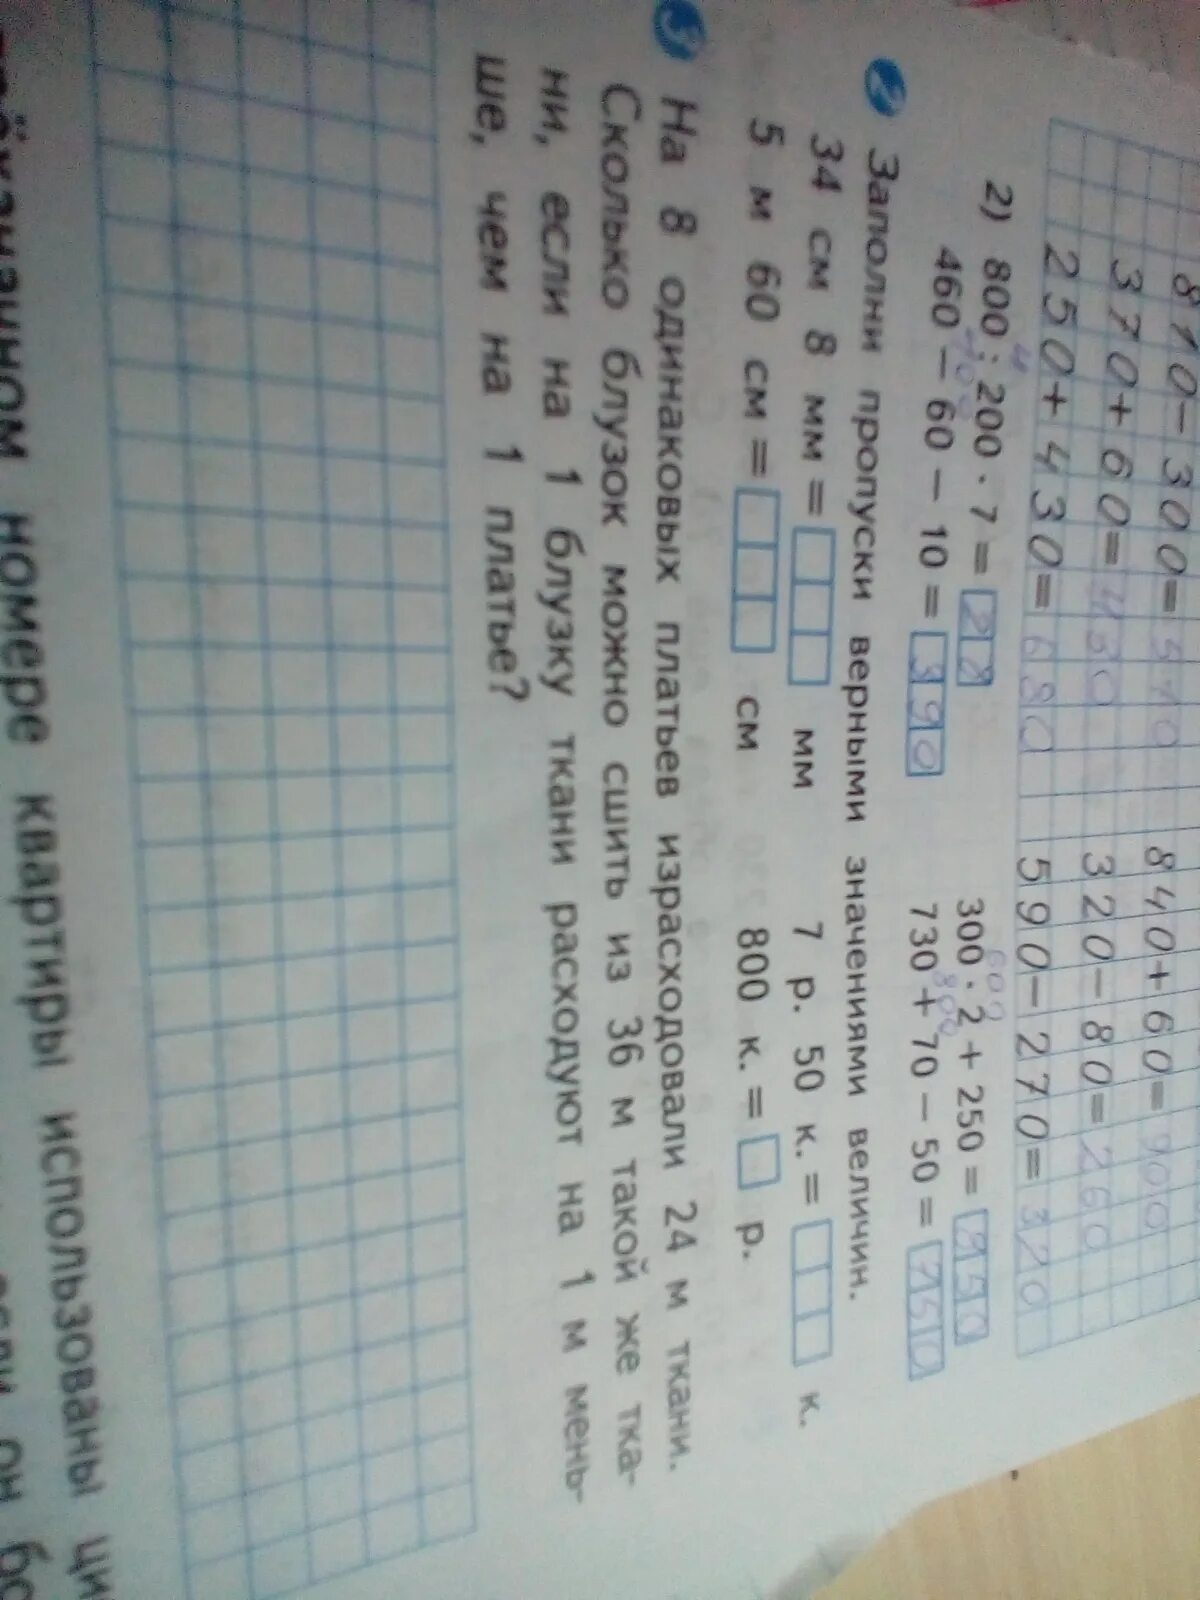 810-300=510 840+60=900
370+60=430 320-80=260
250+430=680 590-270=320
2) 800 : 200 · 7 = 28 300 · 2 + 250 = 850
460 - 60 - 10 = 390 730 + 70 - 50 = 750
2 Заполни пропуски верными значениями величин.
34 см 8 мм = мм 7 р. 50 к. = к.
5 м 60 см = см 800 к. = р.
3 На 8 одинаковых платьев израсходовали 24 м ткани.
Сколько блузок можно сшить из 36 м такой же тка-
ни, если на 1 блузку ткани расходуют на 1 м мень-
ше, чем на 1 платье?
номере квартиры использованы